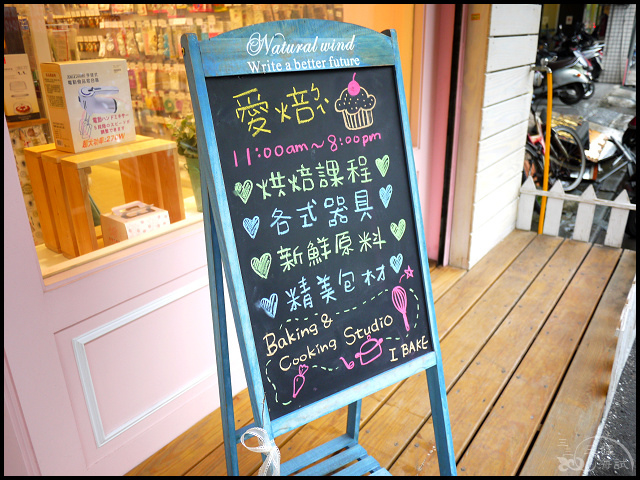 Natural wind
Write a better future
愛焙ㄅㄟˋ
11:00am~8:00pm
烘焙課程
各式器具
新鮮原料
精美包材
Baking &
Cooking Studio
I BAKE